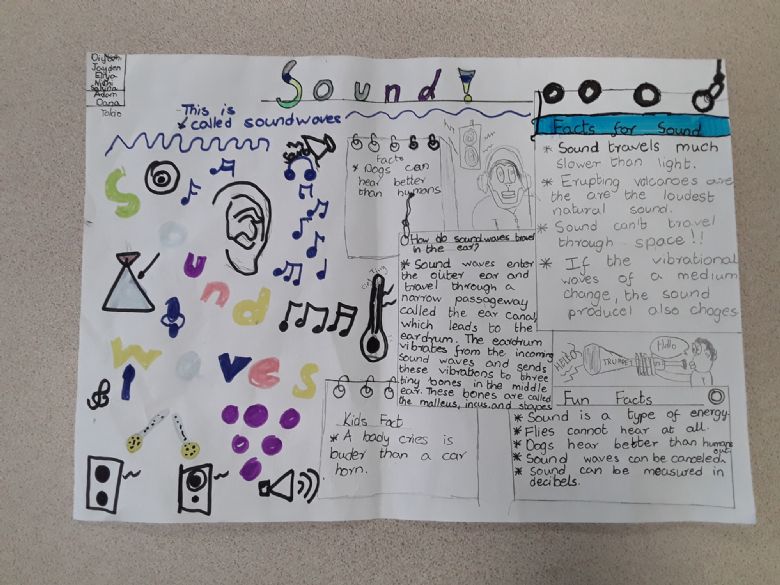 Jayden
Adam
Dana
Sound!
This is
called soundwaves
Sound
waves
Facts
* Dogs can
hear better
than humans
How do soundwaves travel
in the ear?
* Sound waves enter
the outer ear and
travel through a
narrow passageway
called the ear canal,
which leads to the
eardrum. The eardrum
vibrates from the incoming
sound waves and sends
these vibrations to three
tiny bones in the middle
ear. These bones are called
the malleus, incus, and stapes
Kids Fact
* A baby cries is
louder than a car
horn.
Facts for Sound
* Sound travels much
slower than light.
* Erupting volcanoes are
the are the loudest
natural sound.
* Sound can't travel
through space!!
* If the vibrational
waves of a medium
change, the sound
produced also chages
HELLO
TRUMPET
Hello
Fun Facts
* Sound is a type of energy.
* Flies cannot hear at all.
* Dogs hear better than humans
* Sound waves can be canceled out.
* Sound can be measured in
decibels.